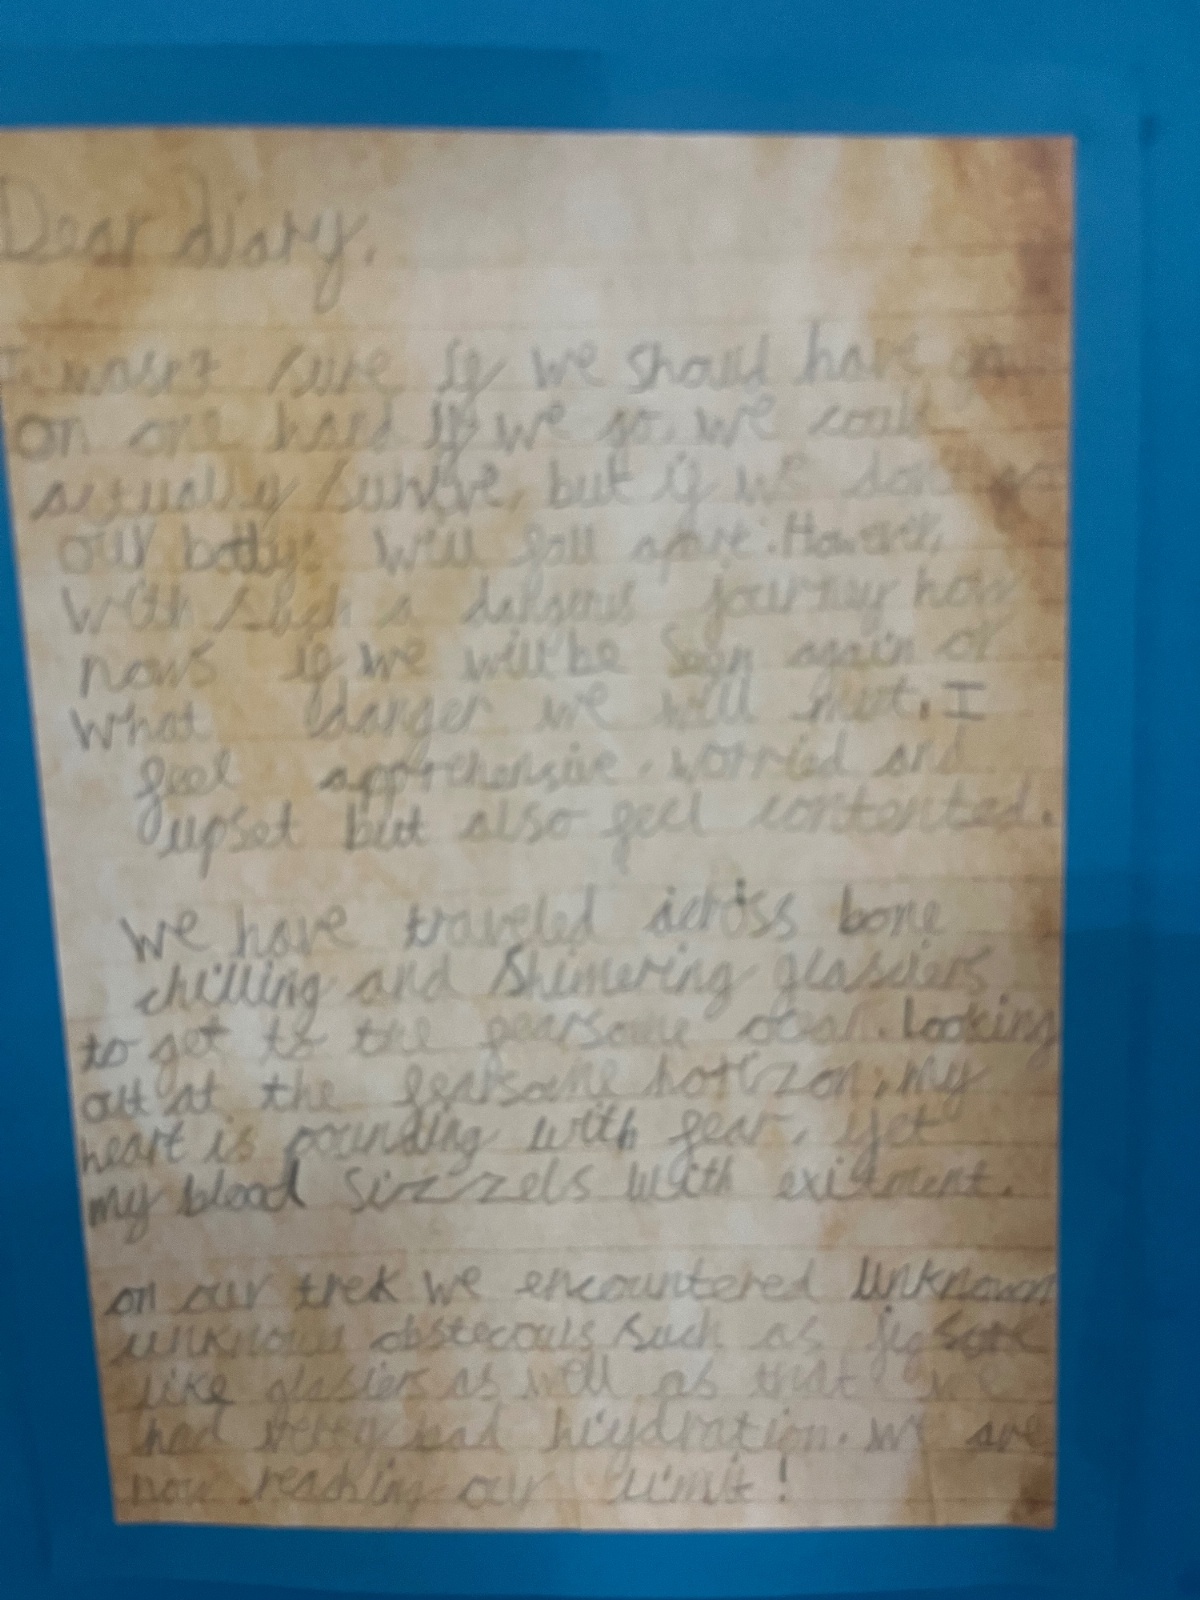 Dear diary,
I wasn't sure if we should have
on one hand if we go, we could
actually survive, but if we don't
our bodty: will fall apart. However,
with such a dangerus journey how
nows if we will be seen again or
what danger we will meet. I
feel apprehensive, worried and
upset but also feel contented.
We have traveled across bone
chilling and Shimering glasiers
to get to the fearsome ocean. Looking
out at the fearsome horizon, my
heart is pounding with fear, yet
my blood sizzels with exitment.
on our trek we encountered unknown
unknown obstecouls such as jigsore
like glasiers as well as that we
had very bad hiydration. we are
now reaching our limit!